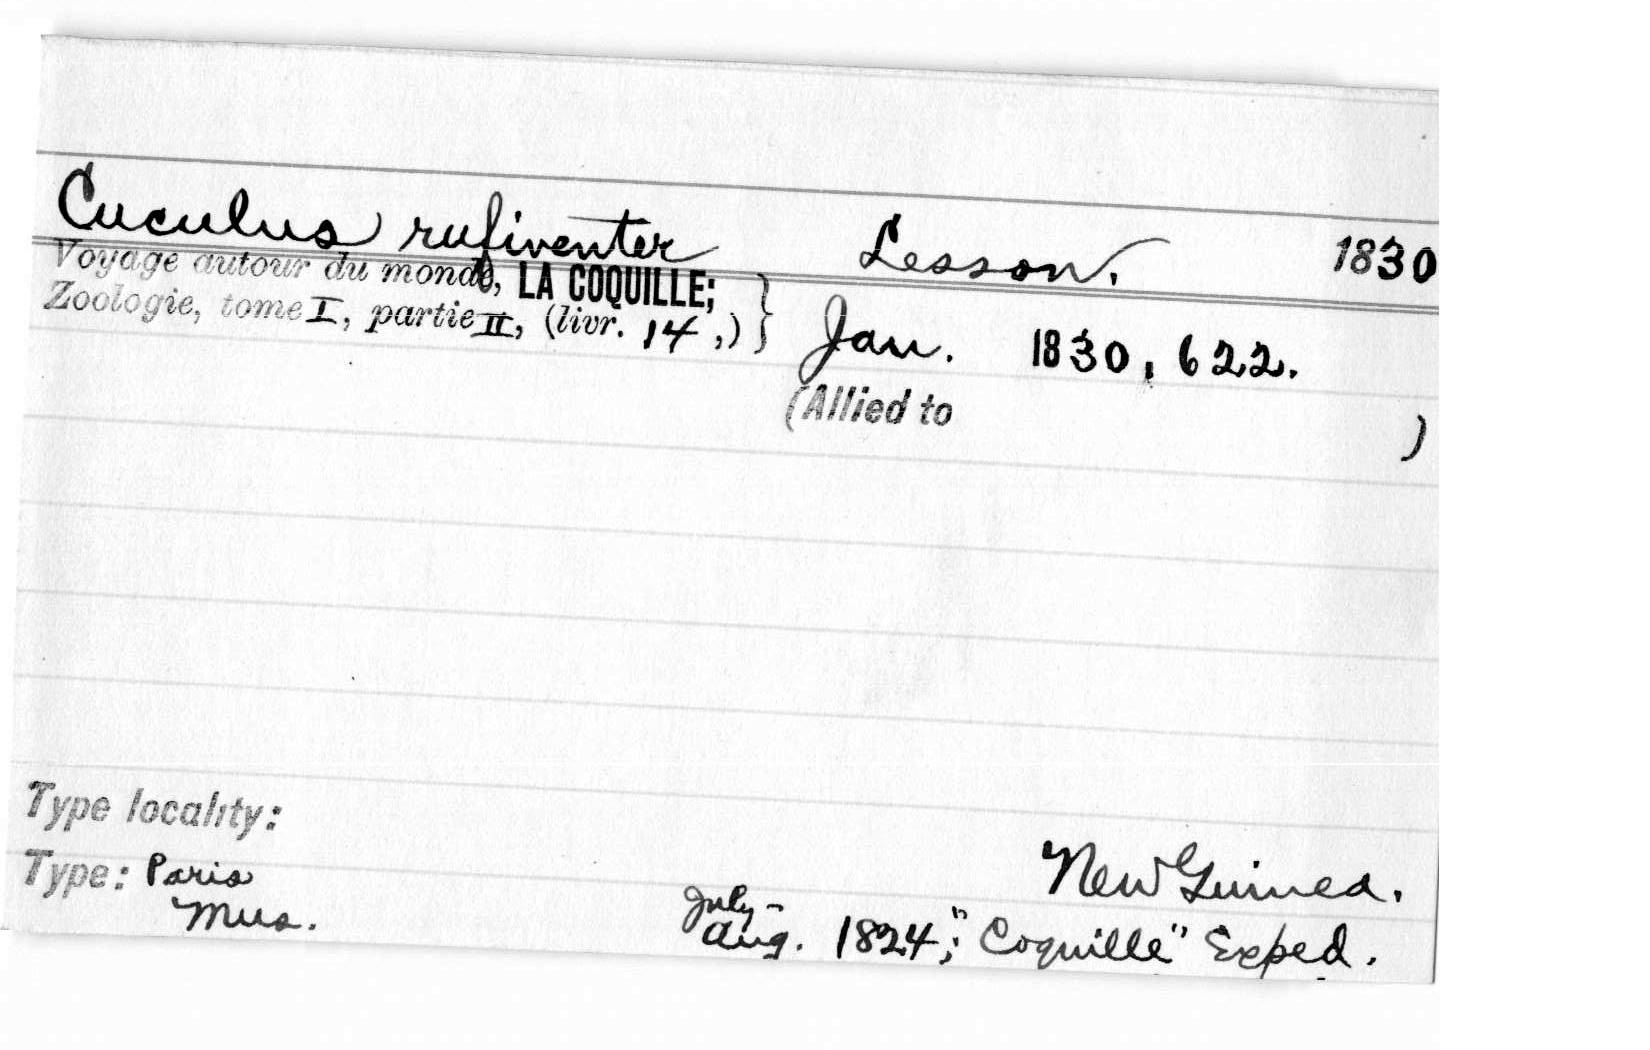 Cuculus rufiventer Lesson, 1830
Voyage autour du monde, LA COQUILLE;
Zoologie, tome I, partie II, (livr. 14,) } Jan. 1830, 622.
(Allied to )
Type locality:
New Guinea.
Type: Paris
Mus.
July-
Aug. 1824; "Coquille" Exped.